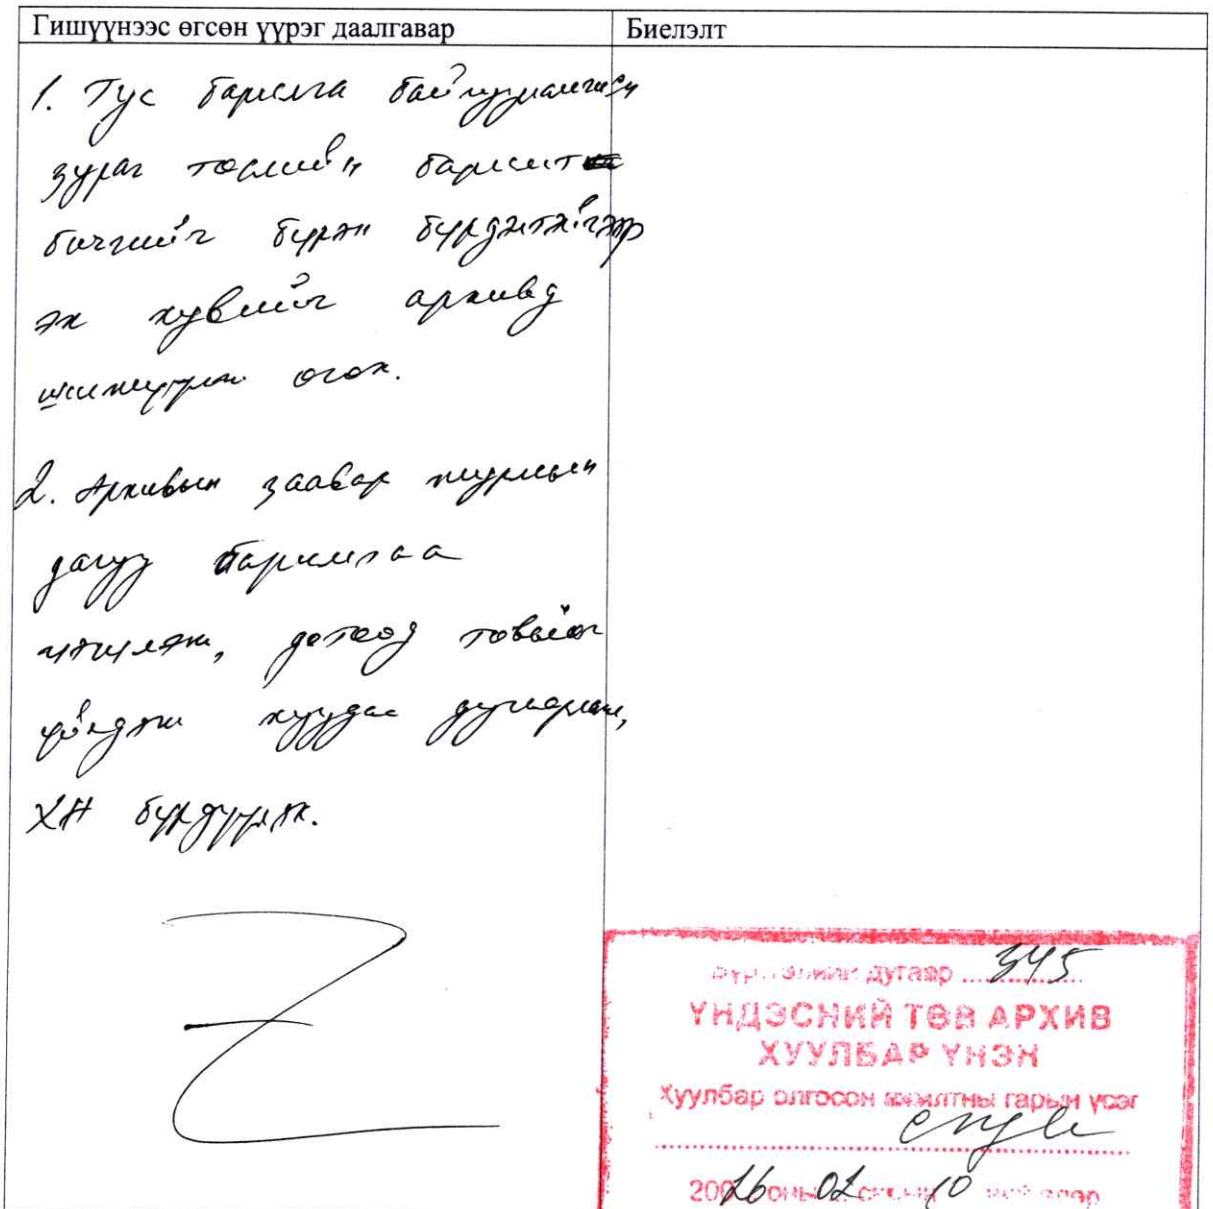 Гишүүнээс өгсөн үүрэг даалгавар
Биелэлт
1. Тус барилга байгууламжийн
зураг төслийн баримт
бичгийг бүрэн бүрдэлтэйгээр
эх хувийг архивд
шилжүүлэн өгөх.
2. Архивын заавар журмын
дагуу баримтаа
цэгцлэж, дотоод товъёог
үйлдэж хуудас дугаарлаж,
ХН бүрдүүлэх.
дугаар 345
ҮНДЭСНИЙ ТӨВ АРХИВ
ХУУЛБАР ҮНЭН
Хуулбар олгосон ажилтны гарын үсэг
2026 оны 02 сарын 10